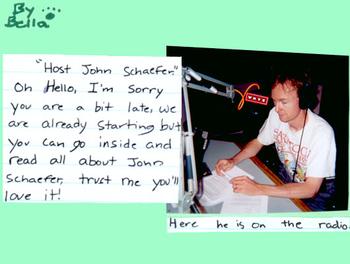 By
Bella
"Host John Schaefer"
Oh Hello, I'm sorry
you are a bit late, we
are already starting but
you can go inside and
read all about John
Schaefer, trust me you'll
love it!
Here he is on the radio.